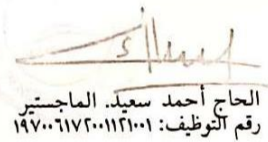 الحاج أحمد سعيد. الماجستير
رقم التوظيف: ١٩٧٠٠٦١٧٢٠٠١١٢١٠٠١